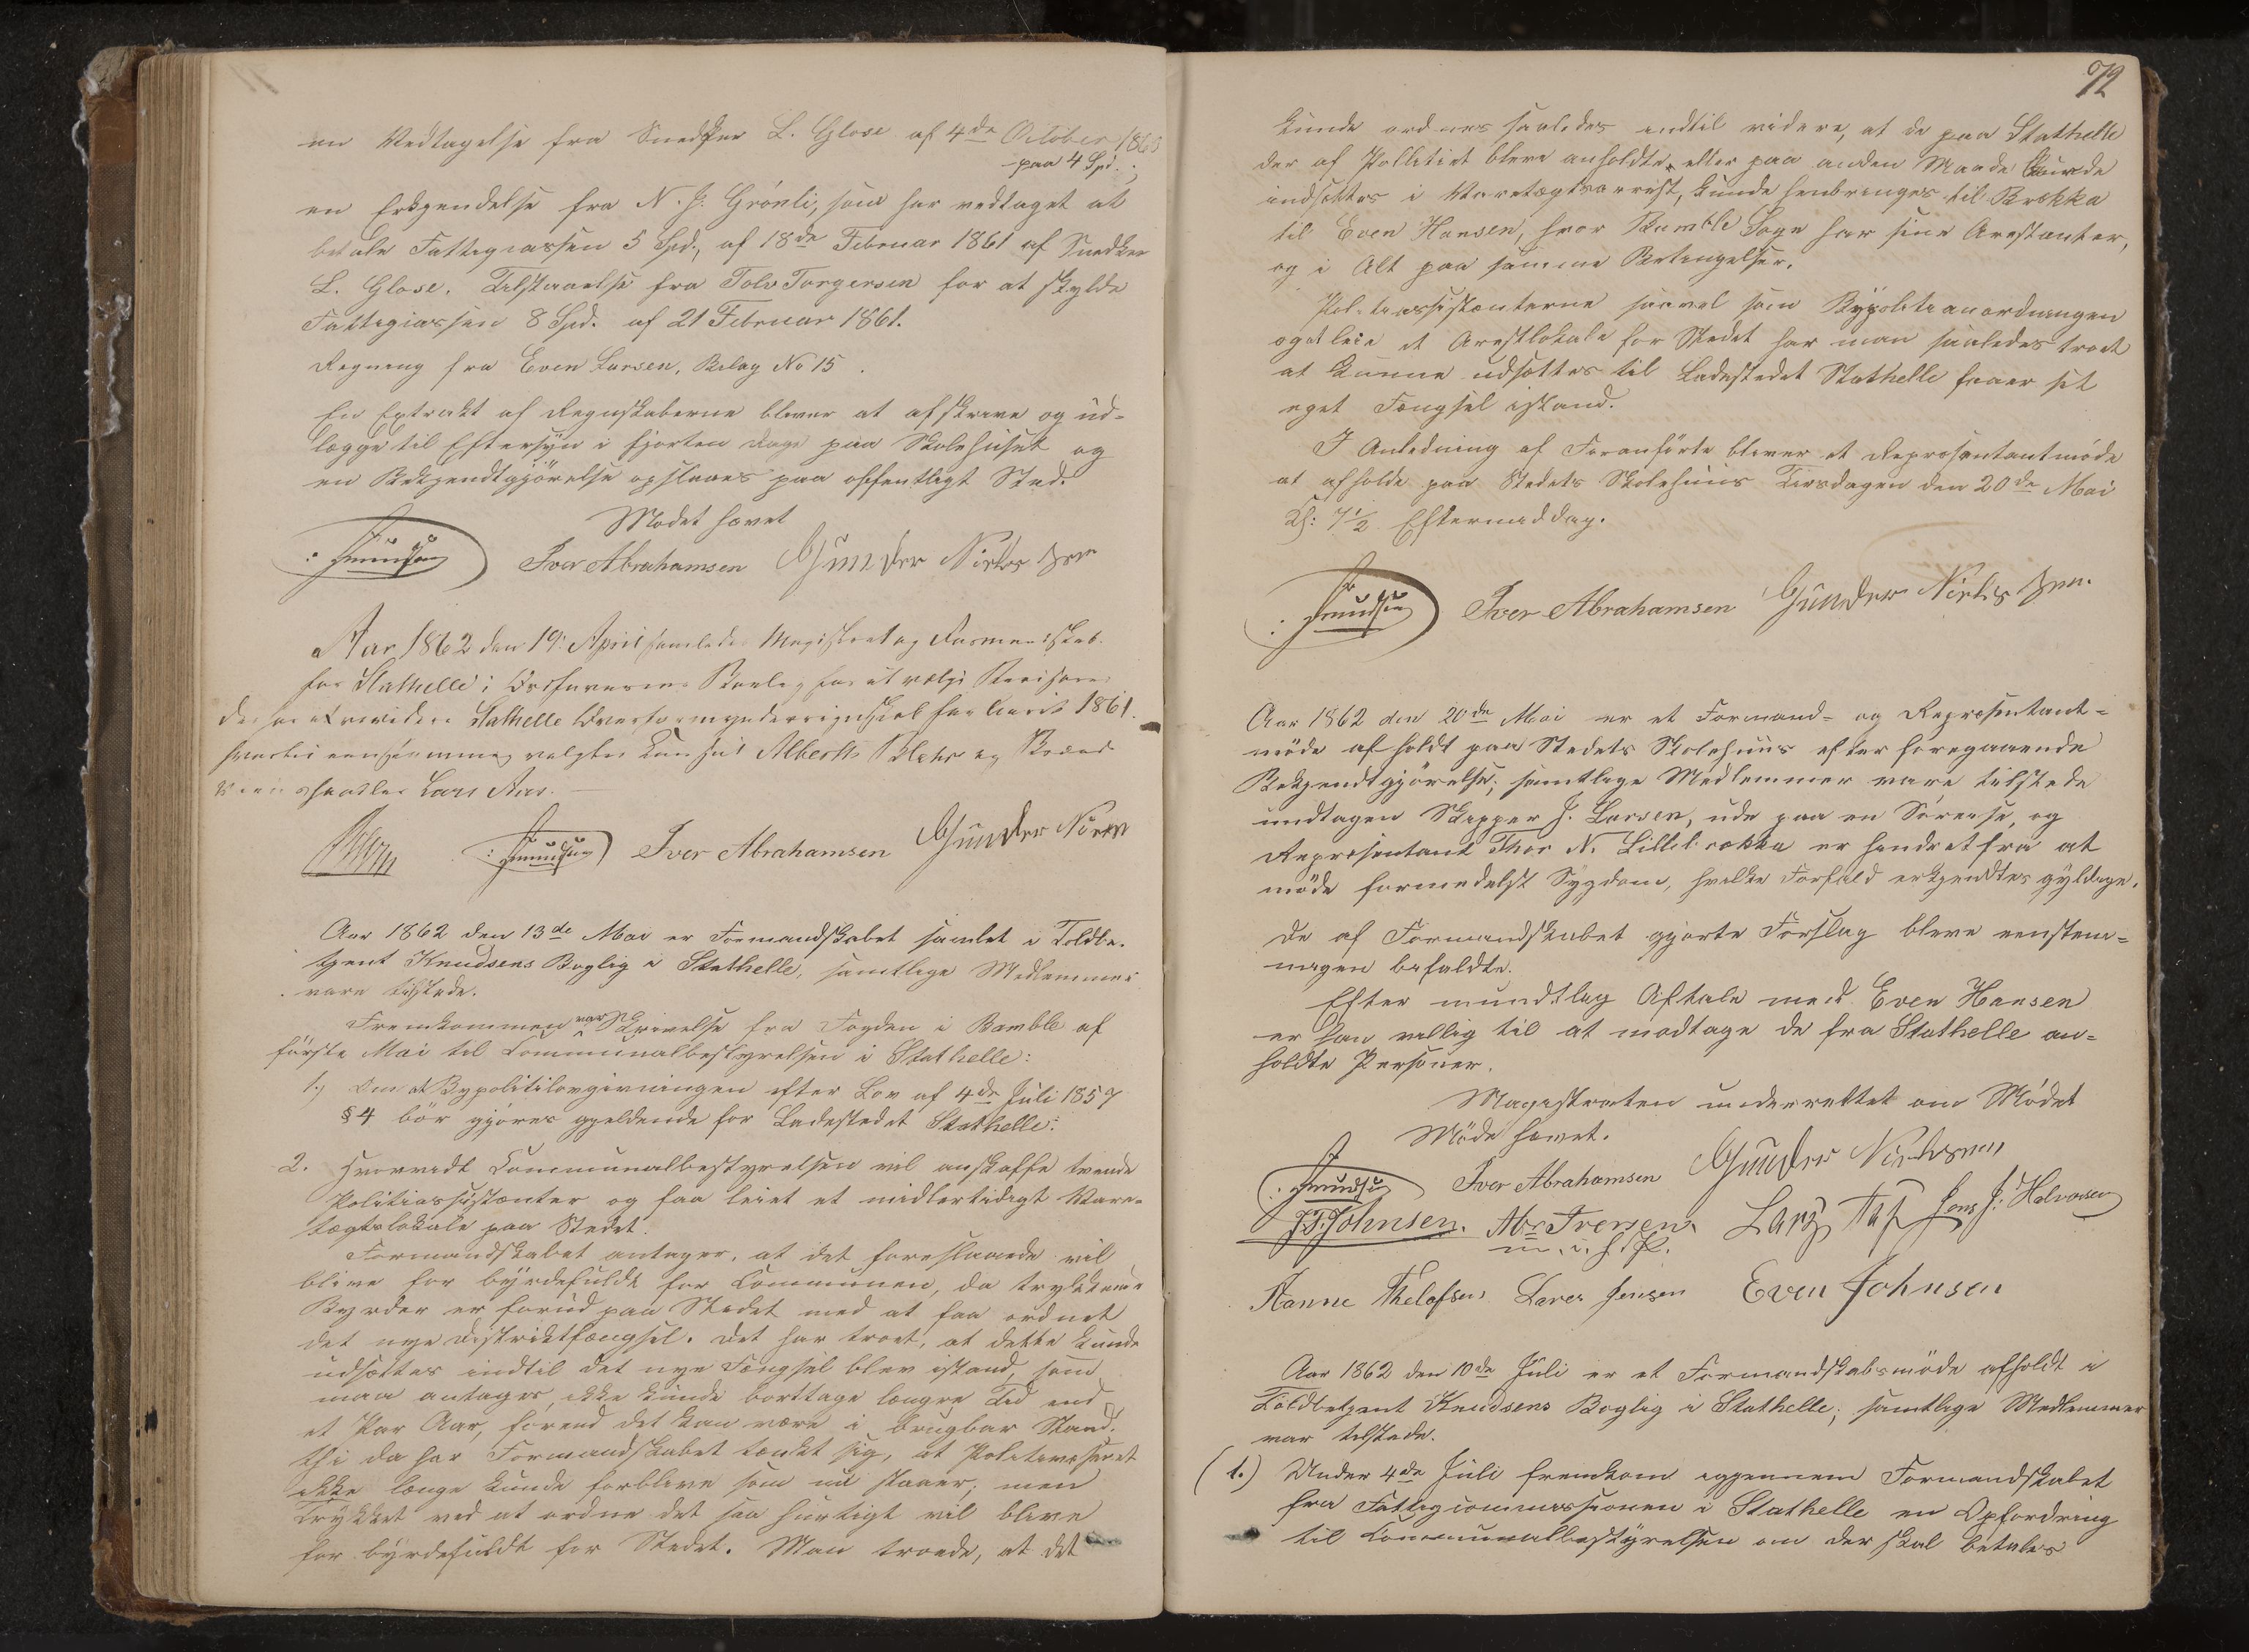 en Vedtagelse fra Snedker L. Glose af 4de October 1860
paa 4 Spd.;
en Erkjendelse fra N. J. Grönli, som har vedtaget at
betale Fattigcassen 5 Spd., af 18de Februar 1861 af Snedker
L. Glose. Tilstaaelse fra Tolv Torgersen for at skylde
Fattigcassen 8 Spd. af 21 Februar 1861.
Regning fra Even Larsen, Belag No 15.
En Extrakt af Regnskaberne bliver at afskrive og ud-
lægge til Eftersyn i fjorten Dage paa Skolehuset og
en Bekjendtgjörelse opslaaes paa offentligt Sted.
Mödet hævet
Knudsen Iver Abrahamsen Gunder Nielssen
Aar 1862 den 19. April samledes Magistrat og Formandskab
for Stathelle i Ordførerens Boelig for at vælge Revisorer
der har at revidere Stathelle Overformynderregnskab for Aaret 1861.
hvortil eenstemmig valgtes Consul Albert Blehr og
Lars Aas.
Knudsen Iver Abrahamsen Gunder Nielssen
Aar 1862 den 13de Mai er Formandskabet samlet i Toldbe-
tjent Knudsens Boglig i Stathelle, samtlige Medlemmer
vare tilstede.
Fremkommen var Skrivelse fra Fogden i Bamble af
förste Mai til Communalbestyrelsen i Stathelle:
1.) Om at Bypolitilovgivningen efter Lov af 4de Juli 1857
§ 4 bör gjöres gjeldende for Ladestedet Stathelle.
2. Hvorvidt Communalbestyrelsen vil anskaffe tvende
Politiassistenter og faa leiet et midlertidigt Vare-
tægtslokale paa Stedet.
Formandskabet antager, at det foreslaaede vil
blive for byrdefuldt for Communen, da trykkende
Byrder er forud paa Stedet med at faa ordnet
det nye Distriktfængsel. Det har troet, at dette kunde
udsættes indtil det nye Fængsel blev istand, som
man antager, ikke kunde borttage længre Tid end
et Par Aar, forend det kan være i brugbar Stand,
thi da har Formandskabet tænkt sig, at Politivæsenet
ikke længe kunde forblive som nu staaer; men
Trykket ved at ordne det saa hurtigt vil blive
for byrdefuldt for Stedet. Man troede, at det
72
kunde ordnes saaledes indtil videre, at de paa Stathelle
der af Pollitiet bleve anholdte eller paa anden Maade burde
indsættes i Varetægtsarrest, kunde henbringes til Brekka
til Even Hansen, hvor Bamble Sogn har sine Arestanter,
og i Alt paa samme Betingelser.
Politiassistenterne saavel som Bypolitianordningen
og at leie et Arestlokale for Stedet har man saaledes troet
at kunne udsættes til Ladestedet Stathelle faaer sit
eget Fængsel istand.
I Anledning af Foranförte bliver et Repræsentantmöde
at afholde paa Stedets Skolehuus Tirsdagen den 20de Mai
Kl: 7 1/2 Eftermiddag.
Knudsen Iver Abrahamsen Gunder Nielssen.
Aar 1862 den 20de Mai er et Formand- og Repræsentant-
möde afholdt paa Stedets Skolehuus efter foregaaende
Bekjendtgjörelse; samtlige Medlemmer vare tilstede
undtagen Skipper J. Larsen, ude paa en Söreise, og
Repræsentant Thor N. Lillebrekka er hindret fra at
möde formedelst Sygdom, hvilke Forfald erkjendtes gyldige.
De af Formandskabet gjorte Forslag bleve eenstem-
migen bifaldte.
Efter mundtlig Aftale med Even Hansen
er han villig til at modtage de fra Stathelle an-
holdte Personer.
Magistraten underrettet om Mödet
Möde hævet.
Knudsen Iver Abrahamsen Gunder Nielssen
J. T. Johnsen. Abr Iversen. Lars Aas Jens J. Halvorsen
m. i. h. P.
Hanne Thelofsen Larer Jensen Even Johnsen
Aar 1862 den 10de Juli er et Formandskabsmöde afholdt i
Toldbetjent Knudsens Boglig i Stathelle; samtlige Medlemmer
var tilstede.
(1.) Under 4de Juli fremkom igjennem Formandskabet
fra Fattigcommissionen i Stathelle en Opfordring
til Communalbestyrelsen om der skal betales